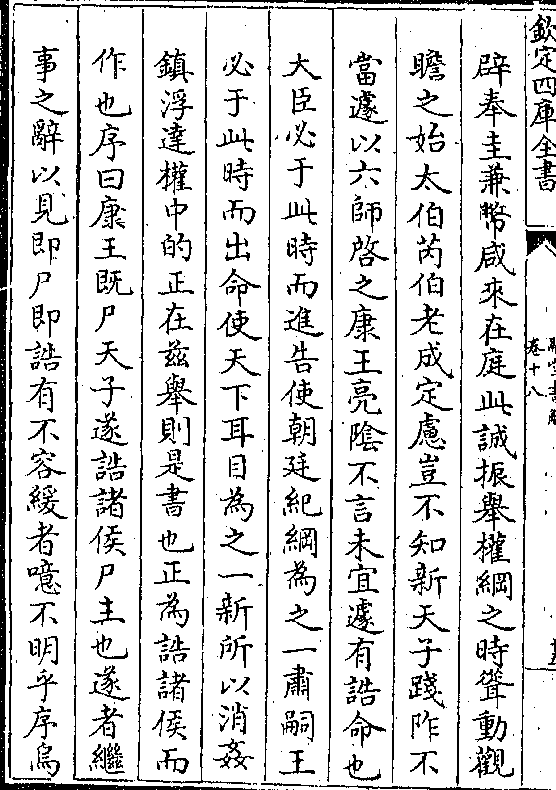 欽定四庫全書
卷十八
辟奉圭兼幣咸來在庭此誠振舉權綱之時聳動觀
瞻之始太伯芮伯老成定慮豈不知新天子踐阼不
當遽以六師啓之康王亮陰不言未宜遽有誥命也
大臣必于此時而進告使朝廷紀綱為之一肅嗣王
必于此時而出命使天下耳目為之一新所以消姦
鎮浮達權中的正在兹舉則是書也正為誥諸侯而
作也序曰康王既尸天子遂誥諸侯尸主也遂者繼
事之辭以見即尸即誥有不容緩者噫不明乎序烏